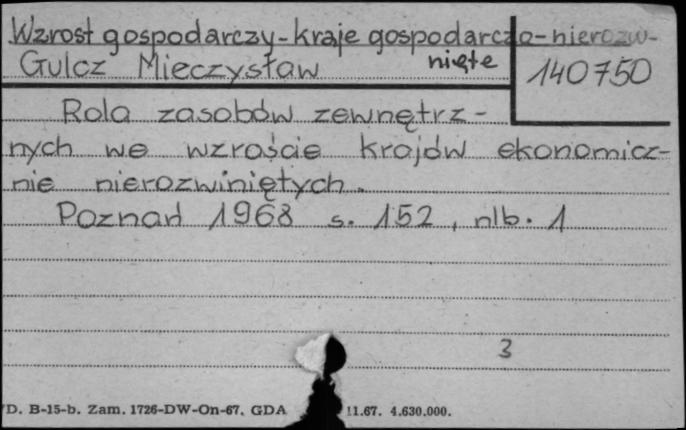 Wzrost gospodarczy-kraje gospodarczo-nierozw-
nięte
Gulcz Mieczysław
140750
Rola zasobów zewnętrz-
nych we wzroście krajów ekonomicz-
nie nierozwiniętych.
Poznań 1968 s. 152, nlb. 1
3
D. B-15-b. Zam. 1726-DW-On-67. GDA 11.67. 4.630.000.